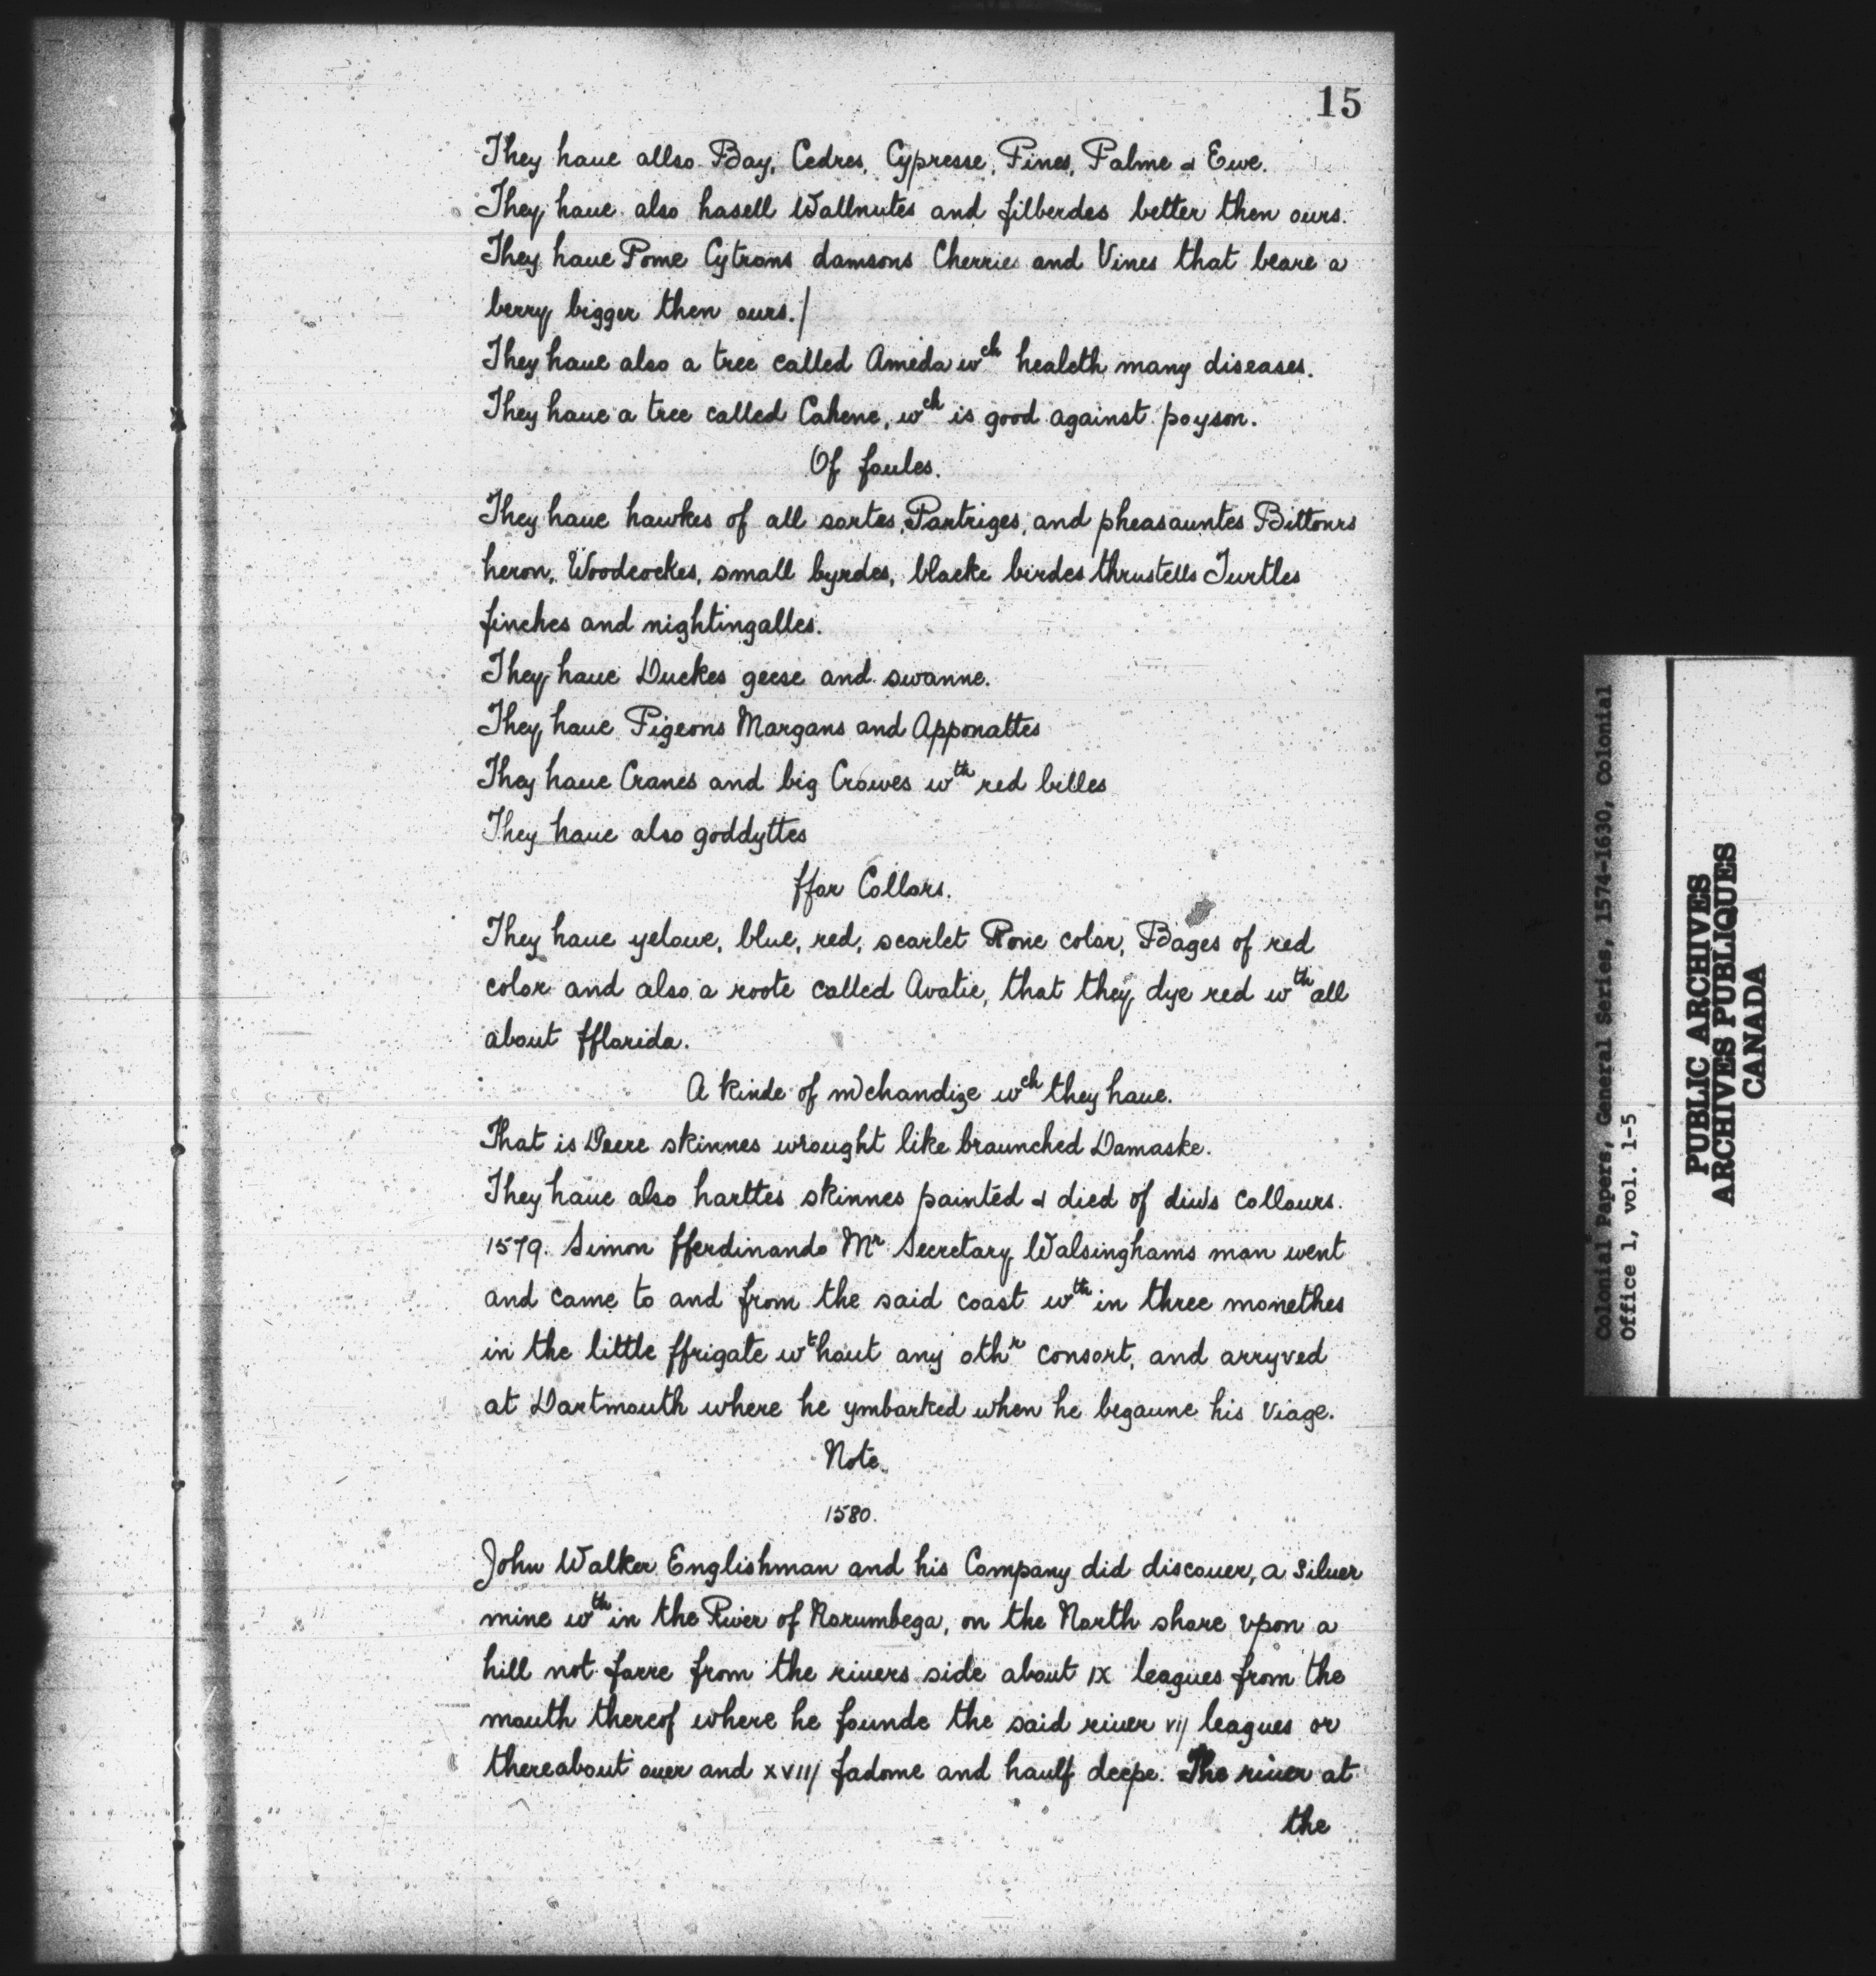 15
They haue allso Bay, Cedres, Cypresse, Pines, Palme & Ewe.
They haue also hasell Wallnutes and filberdes better then ours.
They haue Pome Cytrons damsons Cherries and Vines that beare a
berry bigger then ours./
They haue also a tree called Ameda wch healeth many diseases.
They haue a tree called Cahene, wch is good against poyson.
Of foules.
They haue hawkes of all sortes, Partriges, and pheasauntes Bittours
heron, Woodcockes, small byrdes, blacke birdes thrustells Turtles
finches and nightingalles.
They haue Duckes geese and swanne.
They haue Pigeons Margans and Apponattes
They haue Cranes and big Crowes wth red billes
They haue also goddyttes
ffor Collors.
They haue yeloue, blue, red, scarlet Rone color, Bages of red
color and also a roote called Avatie, that they dye red wth all
about fflorida.
A kinde of mchandize wch they haue.
That is Deere skinnes wrought like braunched Damaske.
They haue also harttes skinnes painted & died of diu's collours.
1579. Simon fferdinando Mr Secretary Walsinghams man went
and came to and from the said coast wth in three monethes
in the little ffrigate wthout any othr consort, and arryved
at Dartmouth where he ymbarked when he begaune his viage.
Note.
1580.
John Walker Englishman and his Company did discouer, a siluer
mine wth in the River of Norumbega, on the North shore vpon a
hill not farre from the riuers side about IX leagues from the
mouth thereof where he founde the said riuer VIJ leagues or
thereabout ouer and XVIIJ fadome and haulf deepe. The riuer at
the
Colonial Papers, General Series, 1574-1630, Colonial
Office 1, vol. 1-5
PUBLIC ARCHIVES
ARCHIVES PUBLIQUES
CANADA